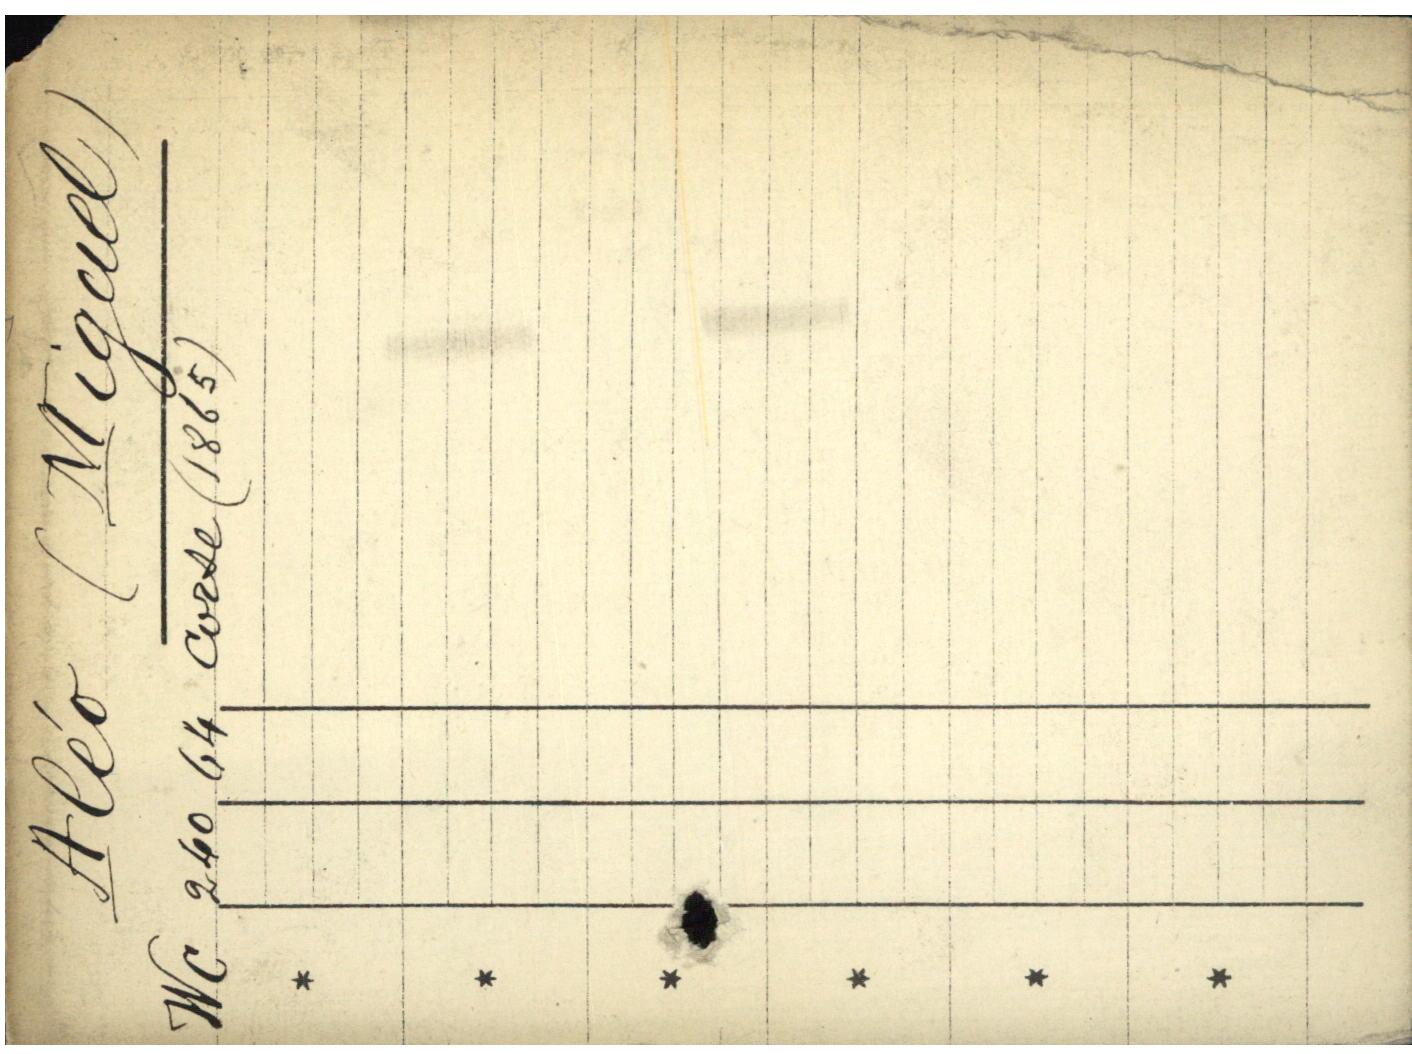 Aléo (Miguel)
WC 240 64 Corse (1865)